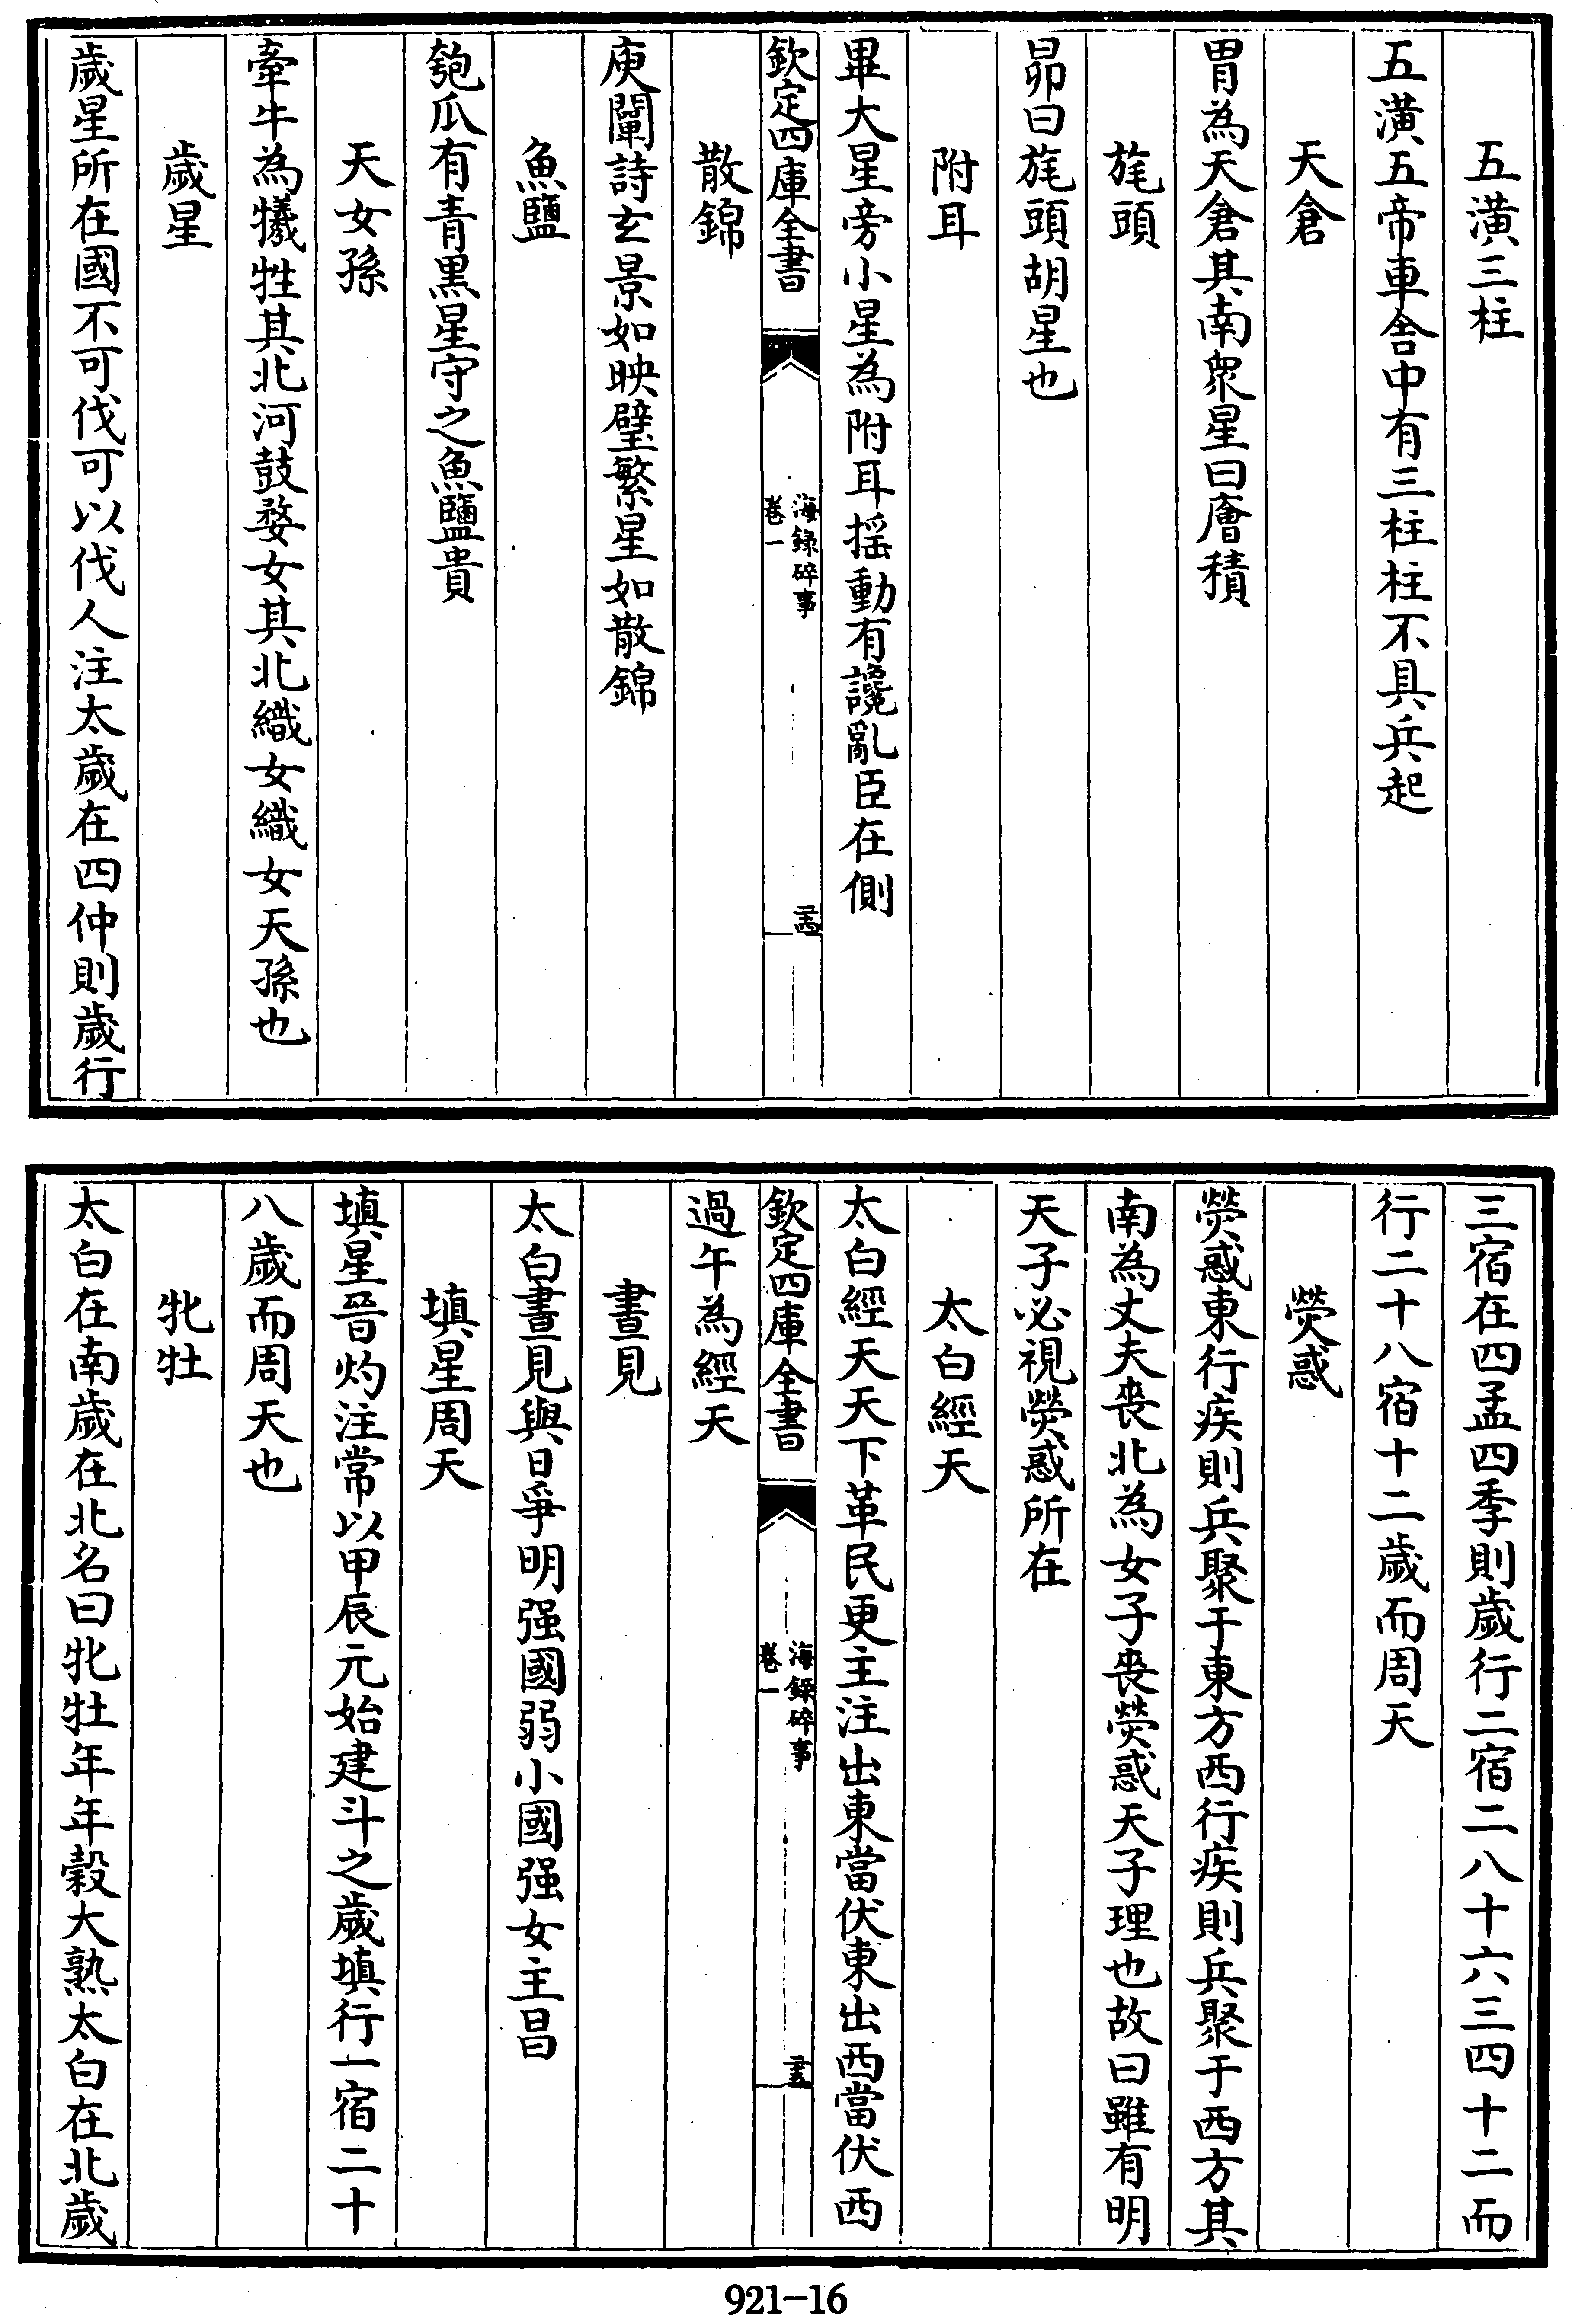 五潢三柱
五潢五帝車舎中有三柱柱不具兵起
天倉
胃為天倉其南衆星曰廥積
旄頭
昴曰旄頭胡星也
附耳
畢大星旁小星為附耳揺動有讒亂臣在側
欽定四庫全書
海録碎事
卷一
二十四
散錦
庾闡詩玄景如映璧繁星如散錦
魚鹽
匏瓜有青黒星守之魚鹽貴
天女孫
牽牛為犧牲其北河鼓婺女其北織女織女天孫也
歲星
歲星所在國不可伐可以伐人注太歲在四仲則歲行
三宿在四孟四季則歲行二宿二八十六三四十二而
行二十八宿十二歲而周天
熒惑
熒惑東行疾則兵聚于東方西行疾則兵聚于西方其
南為丈夫喪北為女子喪熒惑天子理也故曰雖有明
天子必視熒惑所在
太白經天
太白經天天下革民更主注出東當伏東出西當伏西
欽定四庫全書
海録碎事
卷一
二十五
過午為經天
晝見
太白晝見與日爭明强國弱小國强女主昌
填星周天
填星晉灼注常以甲辰元始建斗之歲填行一宿二十
八歲而周天也
牝牡
太白在南歲在北名曰牝牡年年穀大熟太白在北歲
921-16